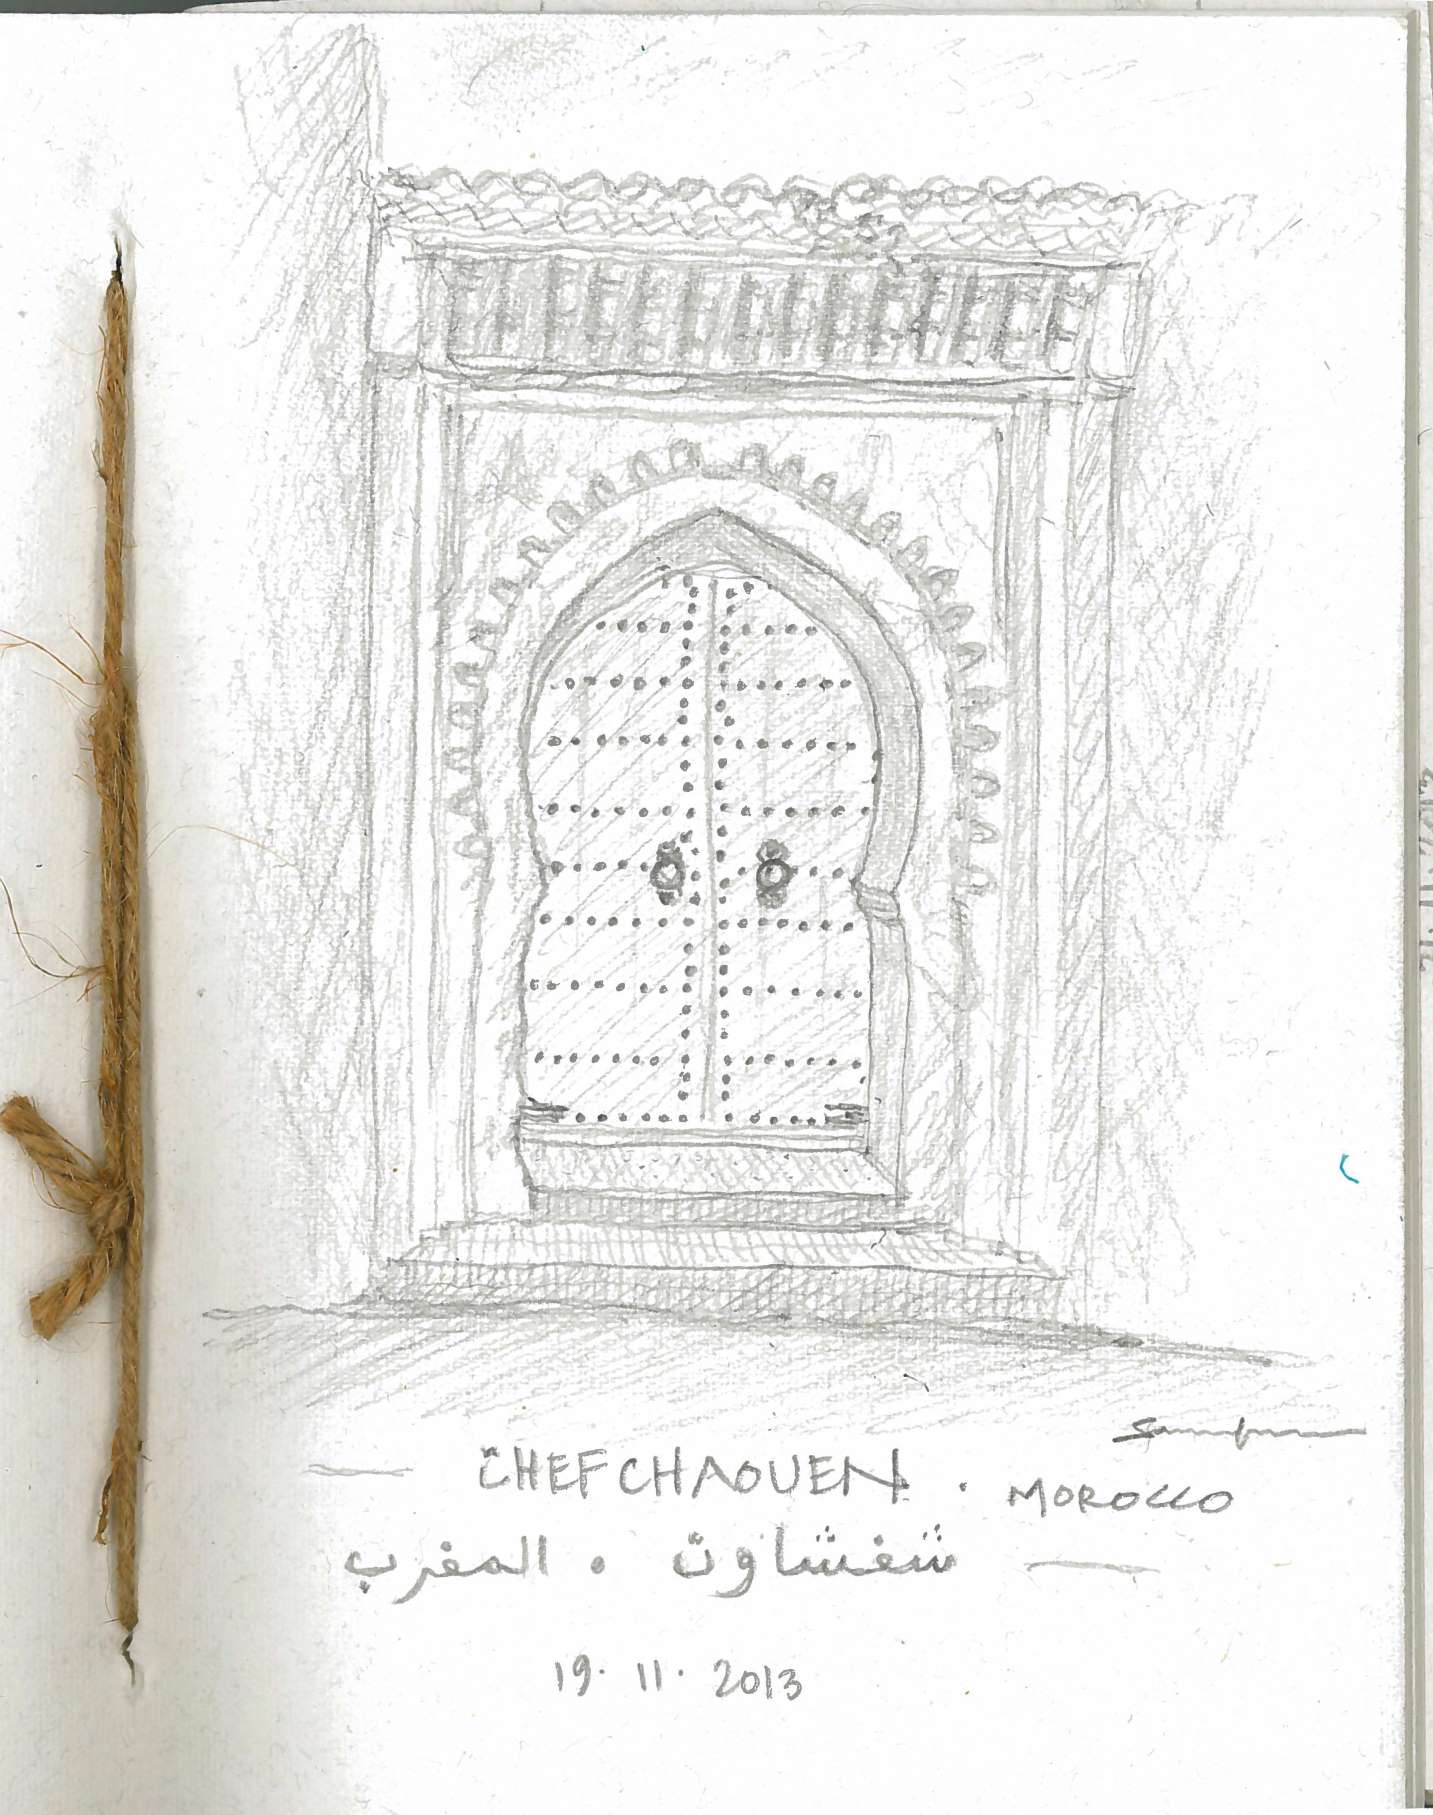 CHEFCHAOUEN . MOROCCO
شفشاون . المغرب
19. 11. 2013